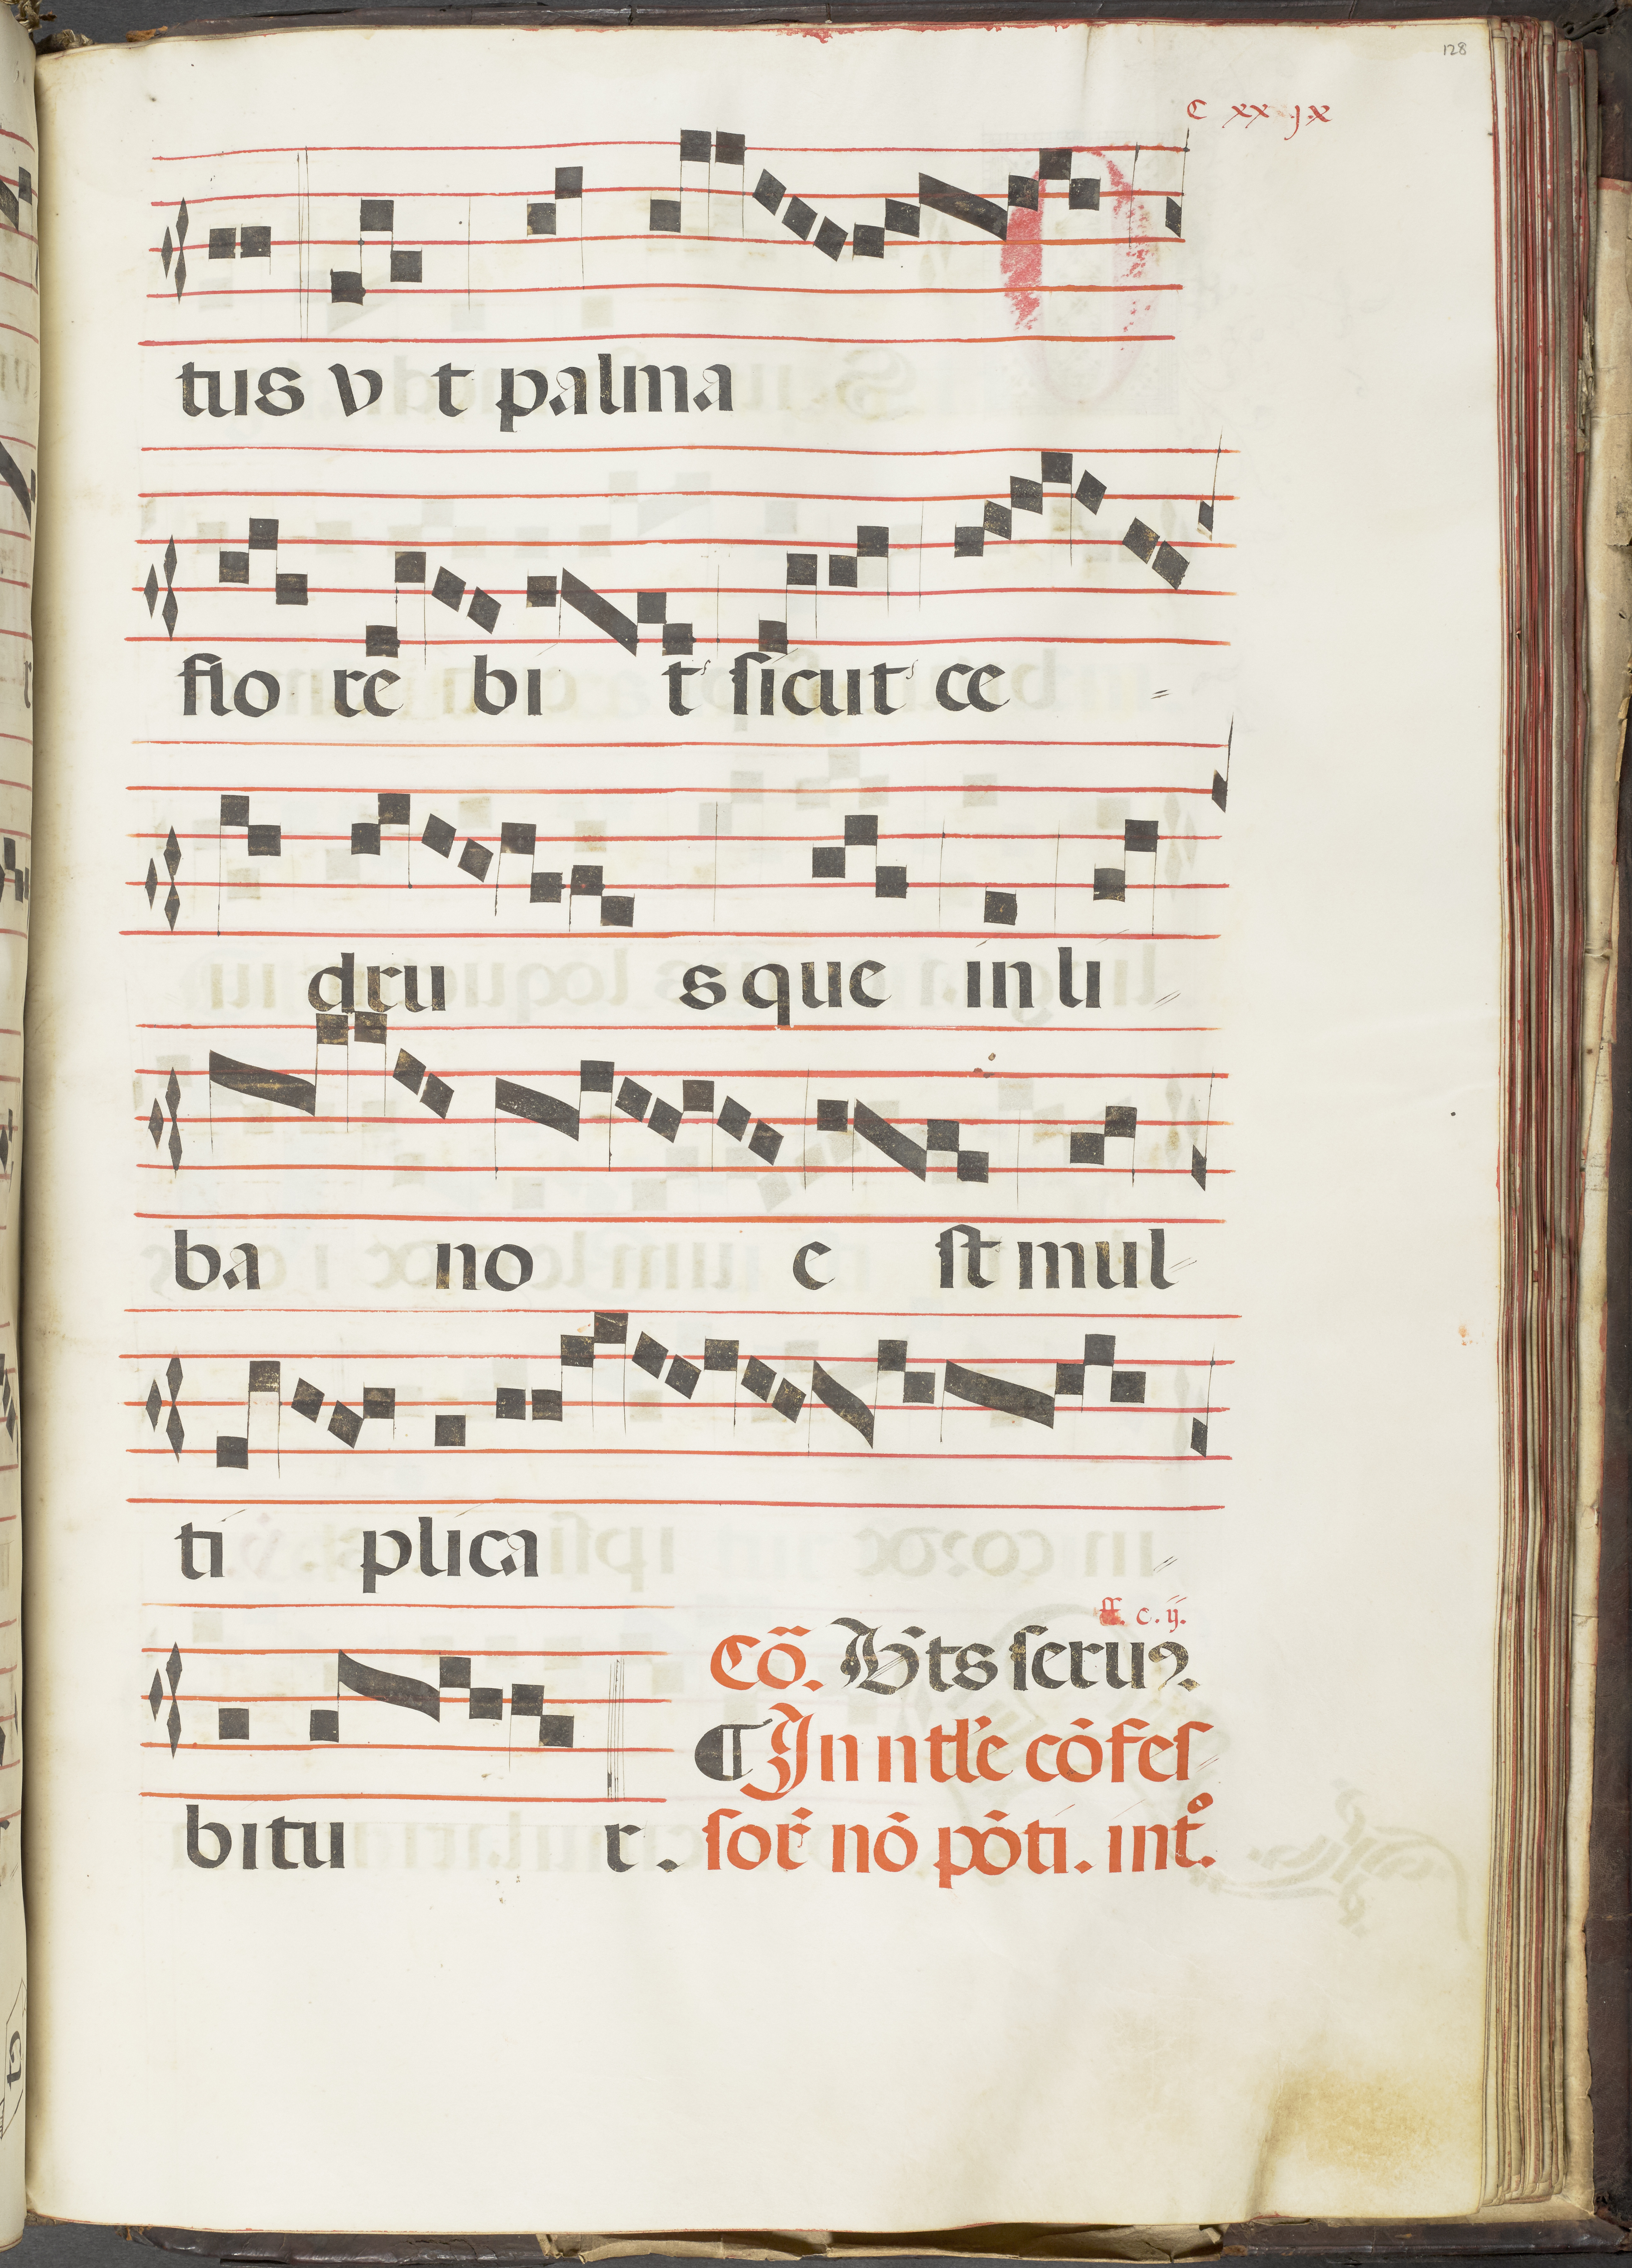 128
C xx jx
tus v t palma
flo re bi t sicut ce =
dru sque in li =
ba no e st mul-
ti plica =
ff. c. ij.
Cō. B̄ts seruꝰ.
bitu r.
¶ In ntłe cōfes
sor̄ nō pōti. intº.